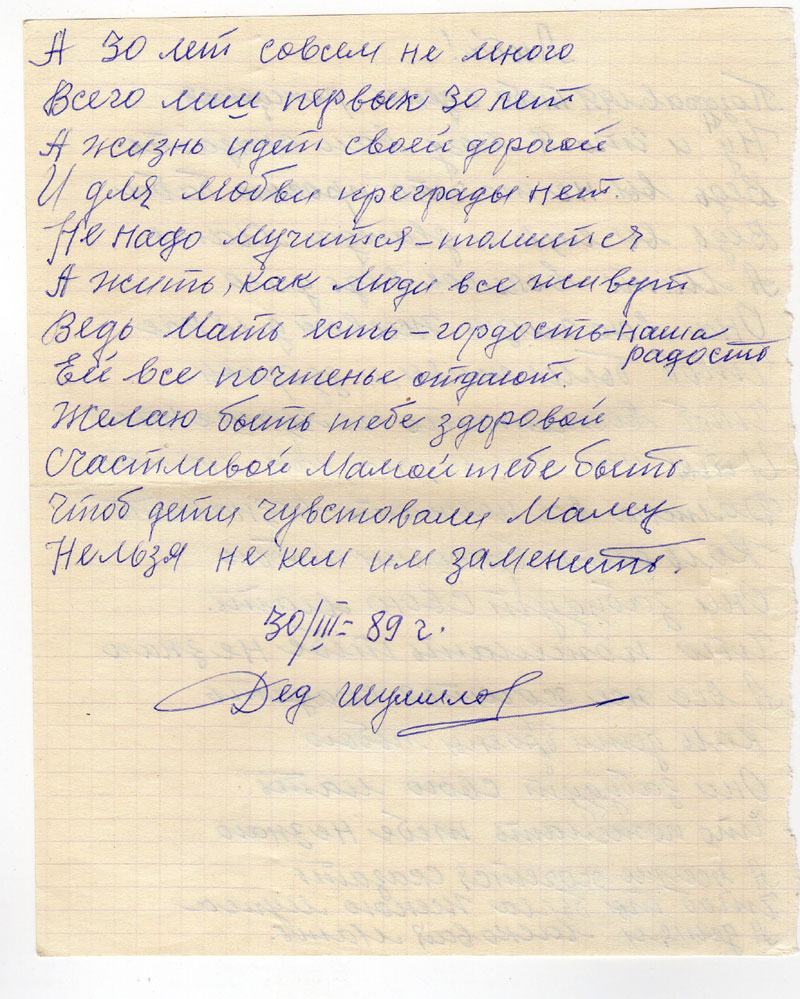 А 30 лет совсем не много
Всего лиш первых 30 лет
А жизнь идет своей дорогой
И для любви преграды нет.
Не надо мучится – томится
А жить, как люди все живут
Ведь Мать есть – гордость – наша
радость
Ей все почтенье отдают
Желаю быть тебе здоровой
Счастливой Мамой тебе быть
Чтоб дети чувстовали Маму
Нельзя не кем им заменить.
30/III – 89 г.
Дед